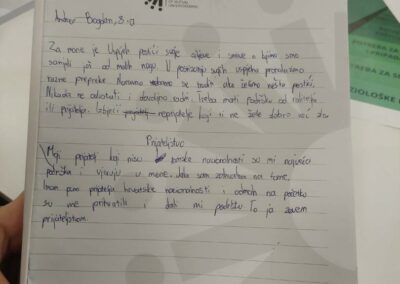 OF MUTUAL
UNDERSTANDING
Andrej Bogdan, 8.
Za mene je Uspjeh postići svoje ciljeve i snove o kojima smo
sanjali još od malih nogu. U postizanju svojih uspjeha pronalazimo
razne prepreke. Moramo se truditi ako želimo nešto postići.
Nikada ne odustati i dovoljno raditi, treba imati podršku od roditelja
ili prijatelja. Izbjeći neprijatelje koji ti ne žele dobro već zlo
Prijateljstvo
Moji prijatelji koji nisu romske nacionalnosti su mi najveća
podrška i vjeruju u mene. Jako sam zahvalan na tome,
Imam puno prijatelja hrvatske nacionalnosti i odmah na početku
su me prihvatili i dali mi podršku To ja zovem
prijateljstvom.
POTREBA ZA
I PRIPADA
POTREBA ZA S
ZIOLOŠKE